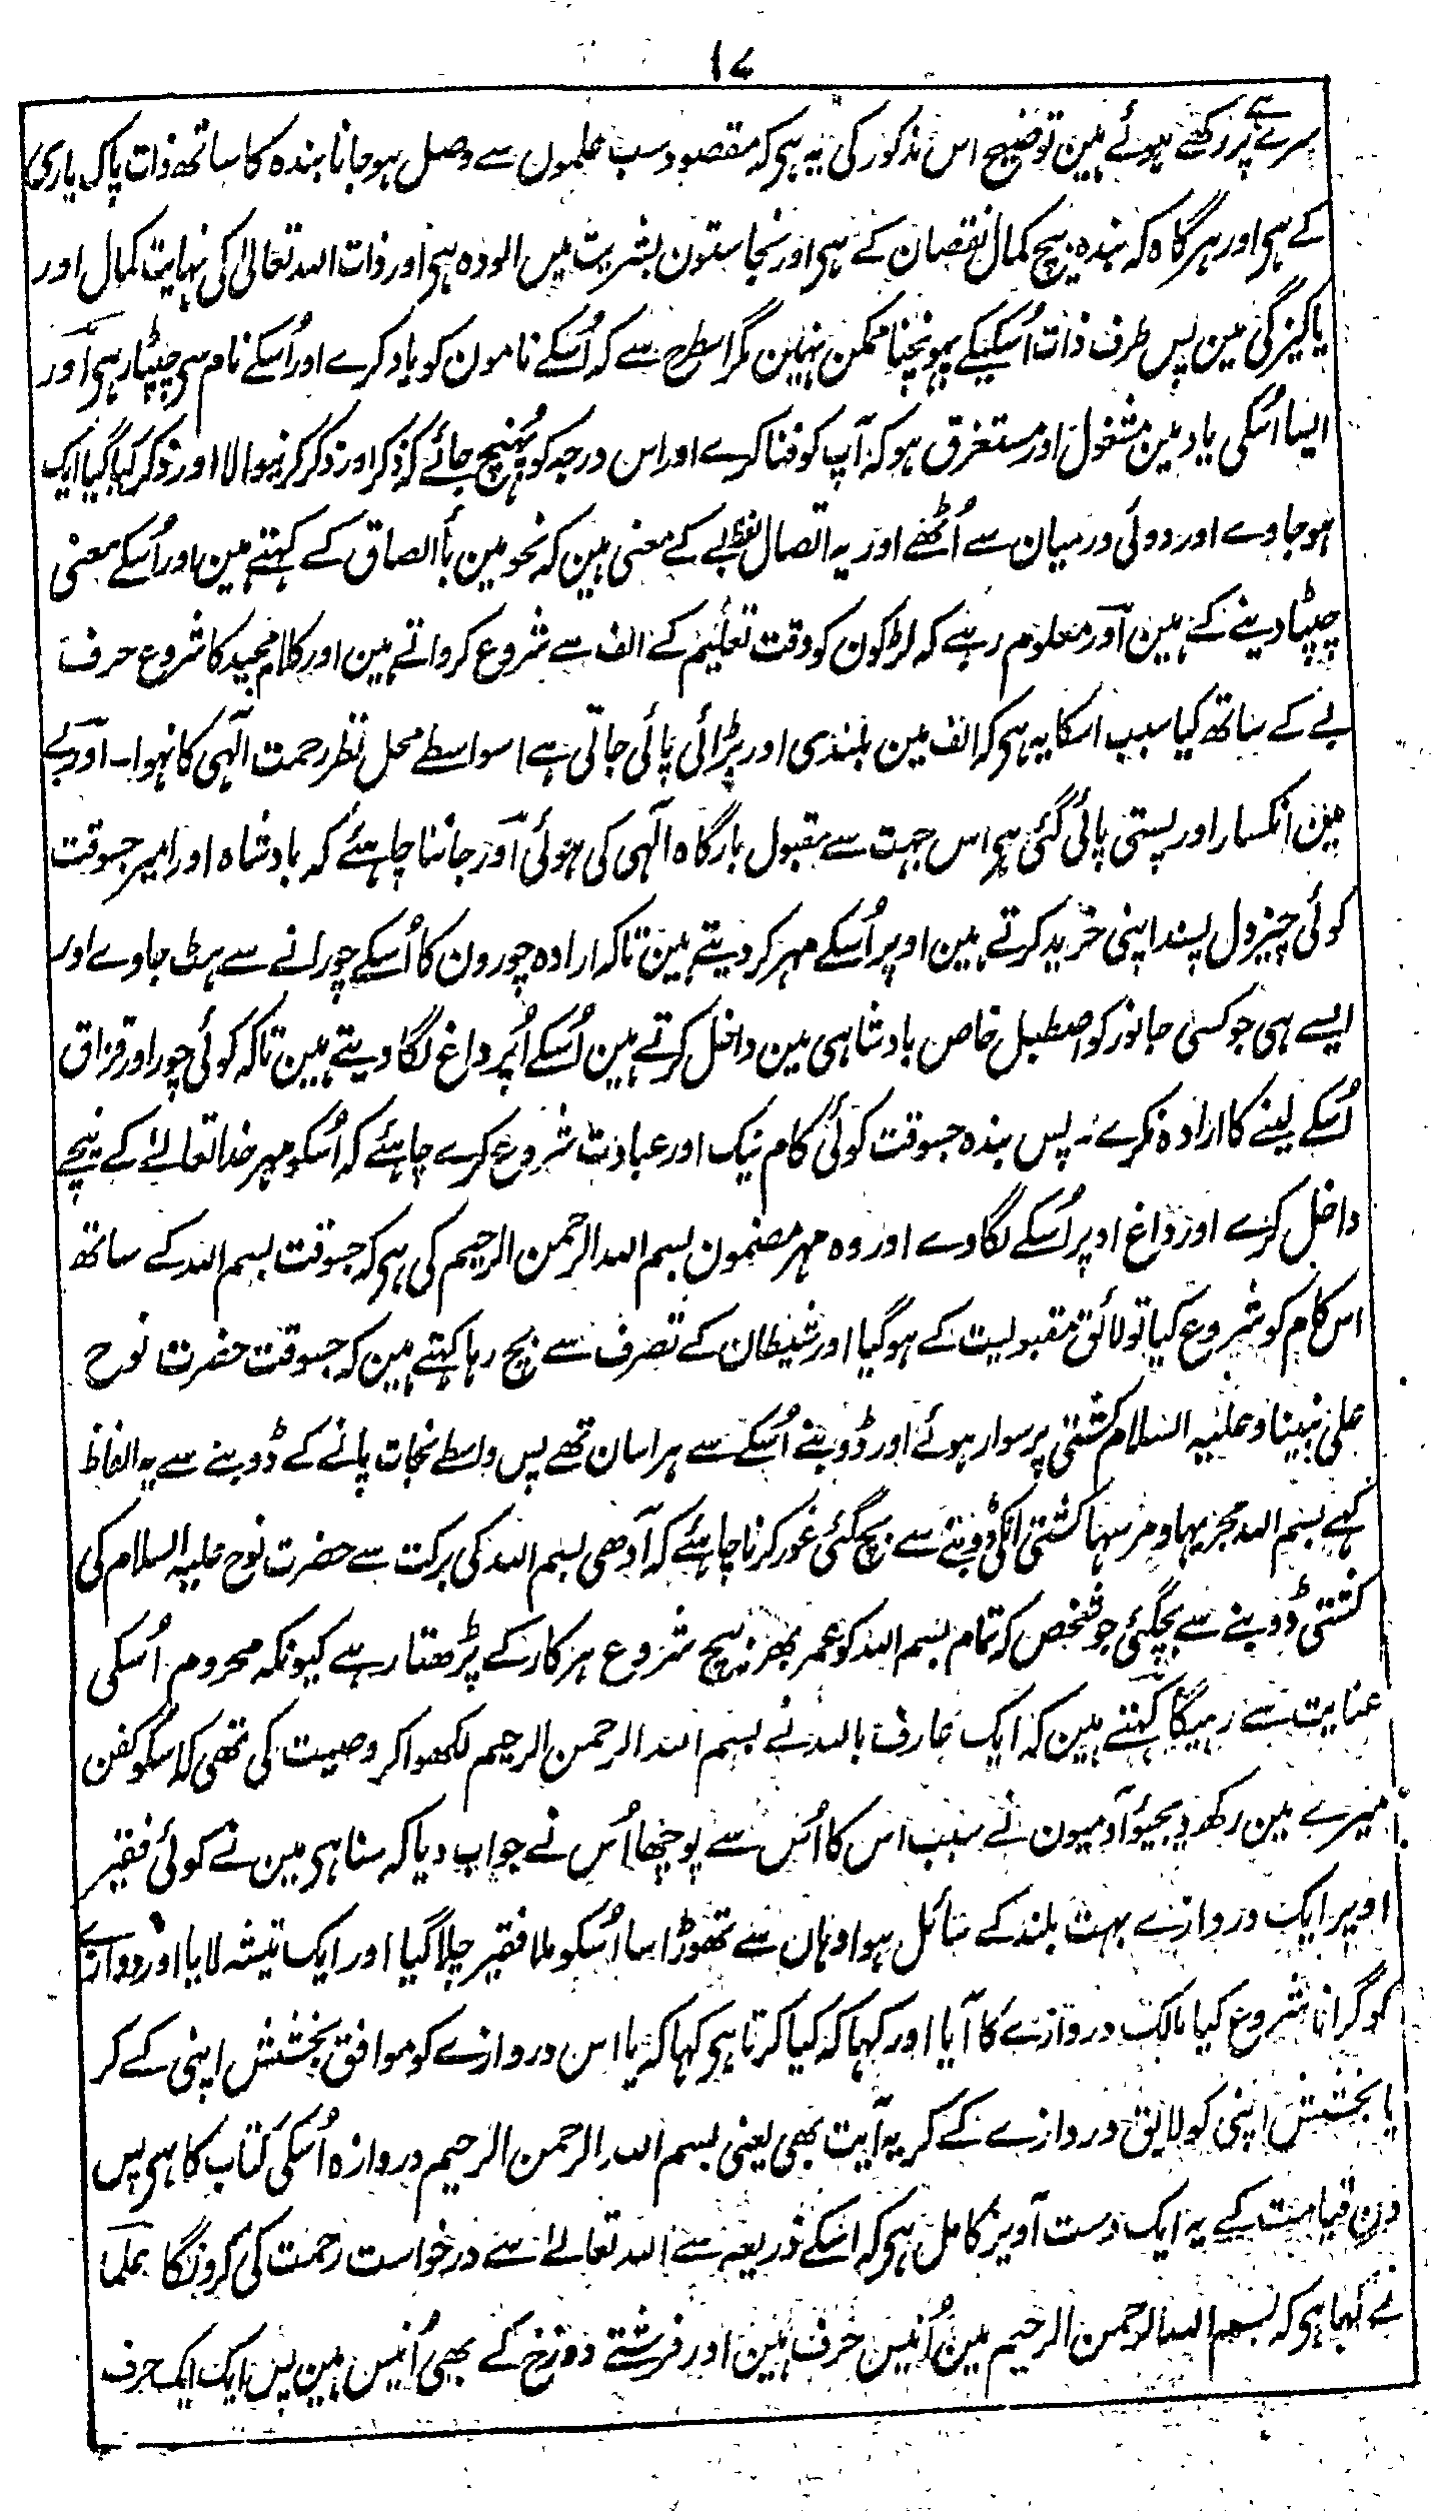 ۱۷
سرے پر رکھے ہوئے ہین توضیح اس مذکور کی یہ ہی کہ مقصود سب علموں سے وصل ہو جانا بندہ کا ساتھ ذات پاک باری
کے ہی اور ہر گاہ کہ بندہ بیچ کمال نقصان کے ہی اور نجاستون بشریت میں الودہ ہی اور ذات اللہ تعالیٰ کی نہایت کمال اور
پاکیزگی مین پس طرف ذات اُسکیکے پہونچنا ممکن نہین مگر اسطرح سے کہ اُسکے نامون کو یاد کرے اور اُسکے نام سی چپٹا رہی اور
ایسا اُسکی یاد مین مشغول اور مستغرق ہو کہ آپ کو فنا کرے اور اس درجہ کو پُہنچ جائے کہ ذکر اور ذکر کرنیوالا اور ذکر کیا گیا ایک
ہو جاوے اور دوئی درمیان سے اُٹھے اور یہ اتصال لفظ بے کے معنی ہین کہ نحو مین بأ الصاق کے کہتے ہین اور اُسکے معنی
چپٹا دینے کے ہین اور معلوم رہے کہ لڑکون کو وقت تعلیم کے الف سے شروع کرواتے ہین اور کلام مجید کا شروع حرف
بے کے ساتھ کیا سبب اسکا یہ ہی کہ الف مین بلندی اور بڑائی پائی جاتی ہے اسواسطے محل نظر رحمت الٰہی کا نہوا۔ اور بے
مین انکسار اور پستی پائی گئی ہی اس جہت سے مقبول بارگاہ الٰہی کی ہوئی اور جاننا چاہئے کہ بادشاہ اور امیر جسوقت
کوئی چیز دل پسند اپنی خرید کرتے ہین اوپر اُسکے مہر کر دیتے ہین تا کہ ارادہ چورون کا اُسکے چورانے سے ہٹ جاوے اور
ایسے ہی جو کسی جانور کو اصطبل خاص بادشاہی مین داخل کرتے ہین اُسکے اُپر داغ لگا دیتے ہین تا کہ کوئی چور اور قزاق
اُسکے لینے کا ارادہ نکرے پس بندہ جسوقت کوئی کام نیک اور عبادت شروع کرے چاہئے کہ اُسکو مہر خدا تعالےٰ کے نیچے
داخل کرے اور داغ اوپر اُسکے لگاوے اور وہ مہر مضمون بسم اللہ الرحمن الرحیم کی ہی کہ جسوقت بسم اللہ کے ساتھ
اس کام کو شروع کیا تو لائق مقبولیت کے ہو گیا اور شیطان کے تصرف سے بچ رہا کہتے ہین کہ جسوقت حضرت نوح
علی نبینا و علیہ السلام کشتی پر سوار ہوئے اور ڈوبنے اُسکے سے ہراسان تھے پس واسطے نجات پانے کے ڈوبنے سے یہ الفاظ
کہے بسم اللہ مجریہا و مرسہا کشتی انکی ڈوبنے سے بچ گئی غور کرنا چاہئے کہ آدھی بسم اللہ کی برکت سے حضرت نوح علیہ السلام کی
کشتی ڈوبنے سے بچگئی جو شخص کہ تمام بسم اللہ کو عمر بھر بیچ شروع ہر کار کے پڑھتا رہے کیونکہ محروم اُسکی
عنایت سے رہیگا کہتے ہین کہ ایک عارف باللہ نے بسم اللہ الرحمن الرحیم لکھوا کر وصیت کی تھی کہ اسکو کفن
میرے مین رکھ دیجیؤ آدمیون نے سبب اس کا اُس سے پوچھا اُس نے جواب دیا کہ سنا ہی مین نے کوئی فقیر
اوپر ایک دروازے بہت بلند کے سائل ہوا وہان سے تھوڑا سا اُسکو ملا فقیر چلا گیا اور ایک تیشہ لایا اور دروازے
کو گرانا شروع کیا مالک دروازے کا آیا اور کہا کہ کیا کرتا ہی کہا کہ یا اس دروازے کو موافق بخشش اپنی کے کر
یا بخشش اپنی کو لایق دروازے کے کر یہ آیت بھی یعنی بسم اللہ الرحمن الرحیم دروازہ اُسکی کتاب کا ہی پس
دن قیامت کے یہ ایک دست آویز کامل ہی کہ اسکے ذریعہ سے اللہ تعالےٰ سے درخواست رحمت کی کرونگا علما
نے کہا ہی کہ بسم اللہ الرحمن الرحیم مین اُنیس حرف ہین اور فرشتے دوزخ کے بھی اُنیس ہین پس ایک ایک حرف